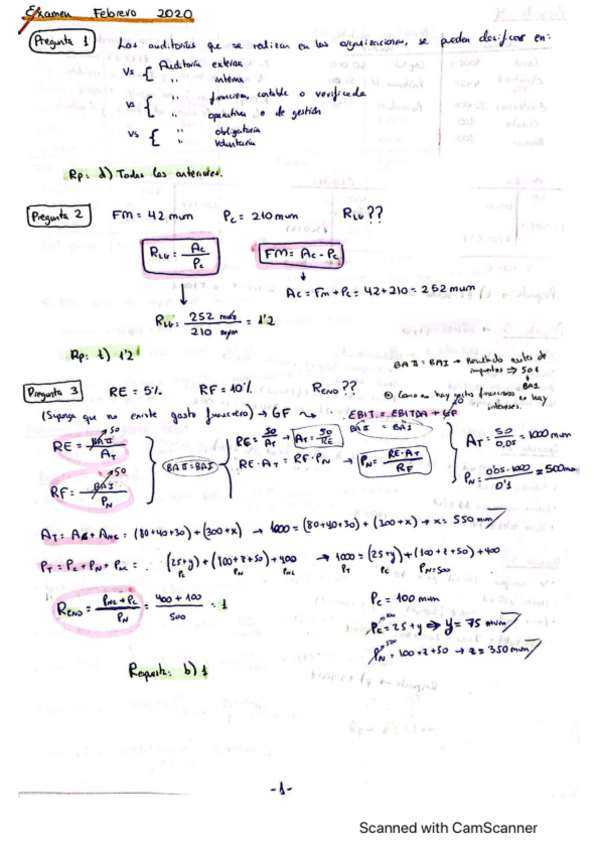 Examen Febrero 2020
Pregunta 1 Las auditorías que se realizan en las organizaciones, se pueden clasificar en:
vs { Auditoría externa
" interna
vs { " financiera, contable o verificada
" operativa o de gestión
vs { " obligatoria
" voluntaria
Rp: d) Todas las anteriores.
Pregunta 2 FM = 42 mum Pc = 210 mum RLG ??
RLG = Ac / Pc
FM = Ac - Pc
Ac = Fm + Pc = 42 + 210 = 252 mum
RLG = 252 / 210 = 1'2
Rp: 1'2
BAII = BAI → Resultado antes de impuestos ⇒ 50€
BAI
Pregunta 3 RE = 5% RF = 10% RENO ??
Como no hay gastos financieros no hay intereses.
(Suponga que no existe gasto financiero) → GF EBIT = EBITDA + GF
BAII = BAI
RE = BAII / AT
50
RF = BAI / PN
50
BAII = BAI
RE = 50 / AT → AT = 50 / RE
RE · AT = RF · PN → PN = RE · AT / RF
AT = 50 / 0,05 = 1000 mum
PN = 0,05 · 1000 / 0'1 = 500 mum
AT = AC + ANC = (80+40+30) + (300+x) → 1000 = (80+40+30) + (300+x) → x = 550 mum
PT = PC + PN + PNC = (25+y) + (100+z+50) + 400 → 1000 = (25+y) + (100+z+50) + 400
PC PN PNC PT PC PN=500
RENO = PNC + PC / PN = 400 + 100 / 500 = 1
PC = 100 mum
PC = 25 + y ⇒ y = 75 mum
PN = 100 + z + 50 → z = 350 mum
Respuesta: b) 1
-1-
Scanned with CamScanner